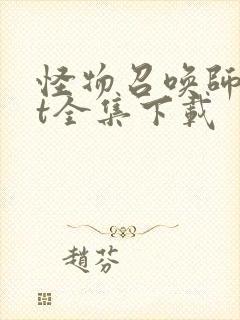 怪物召唤師
t全集下載
趙芬